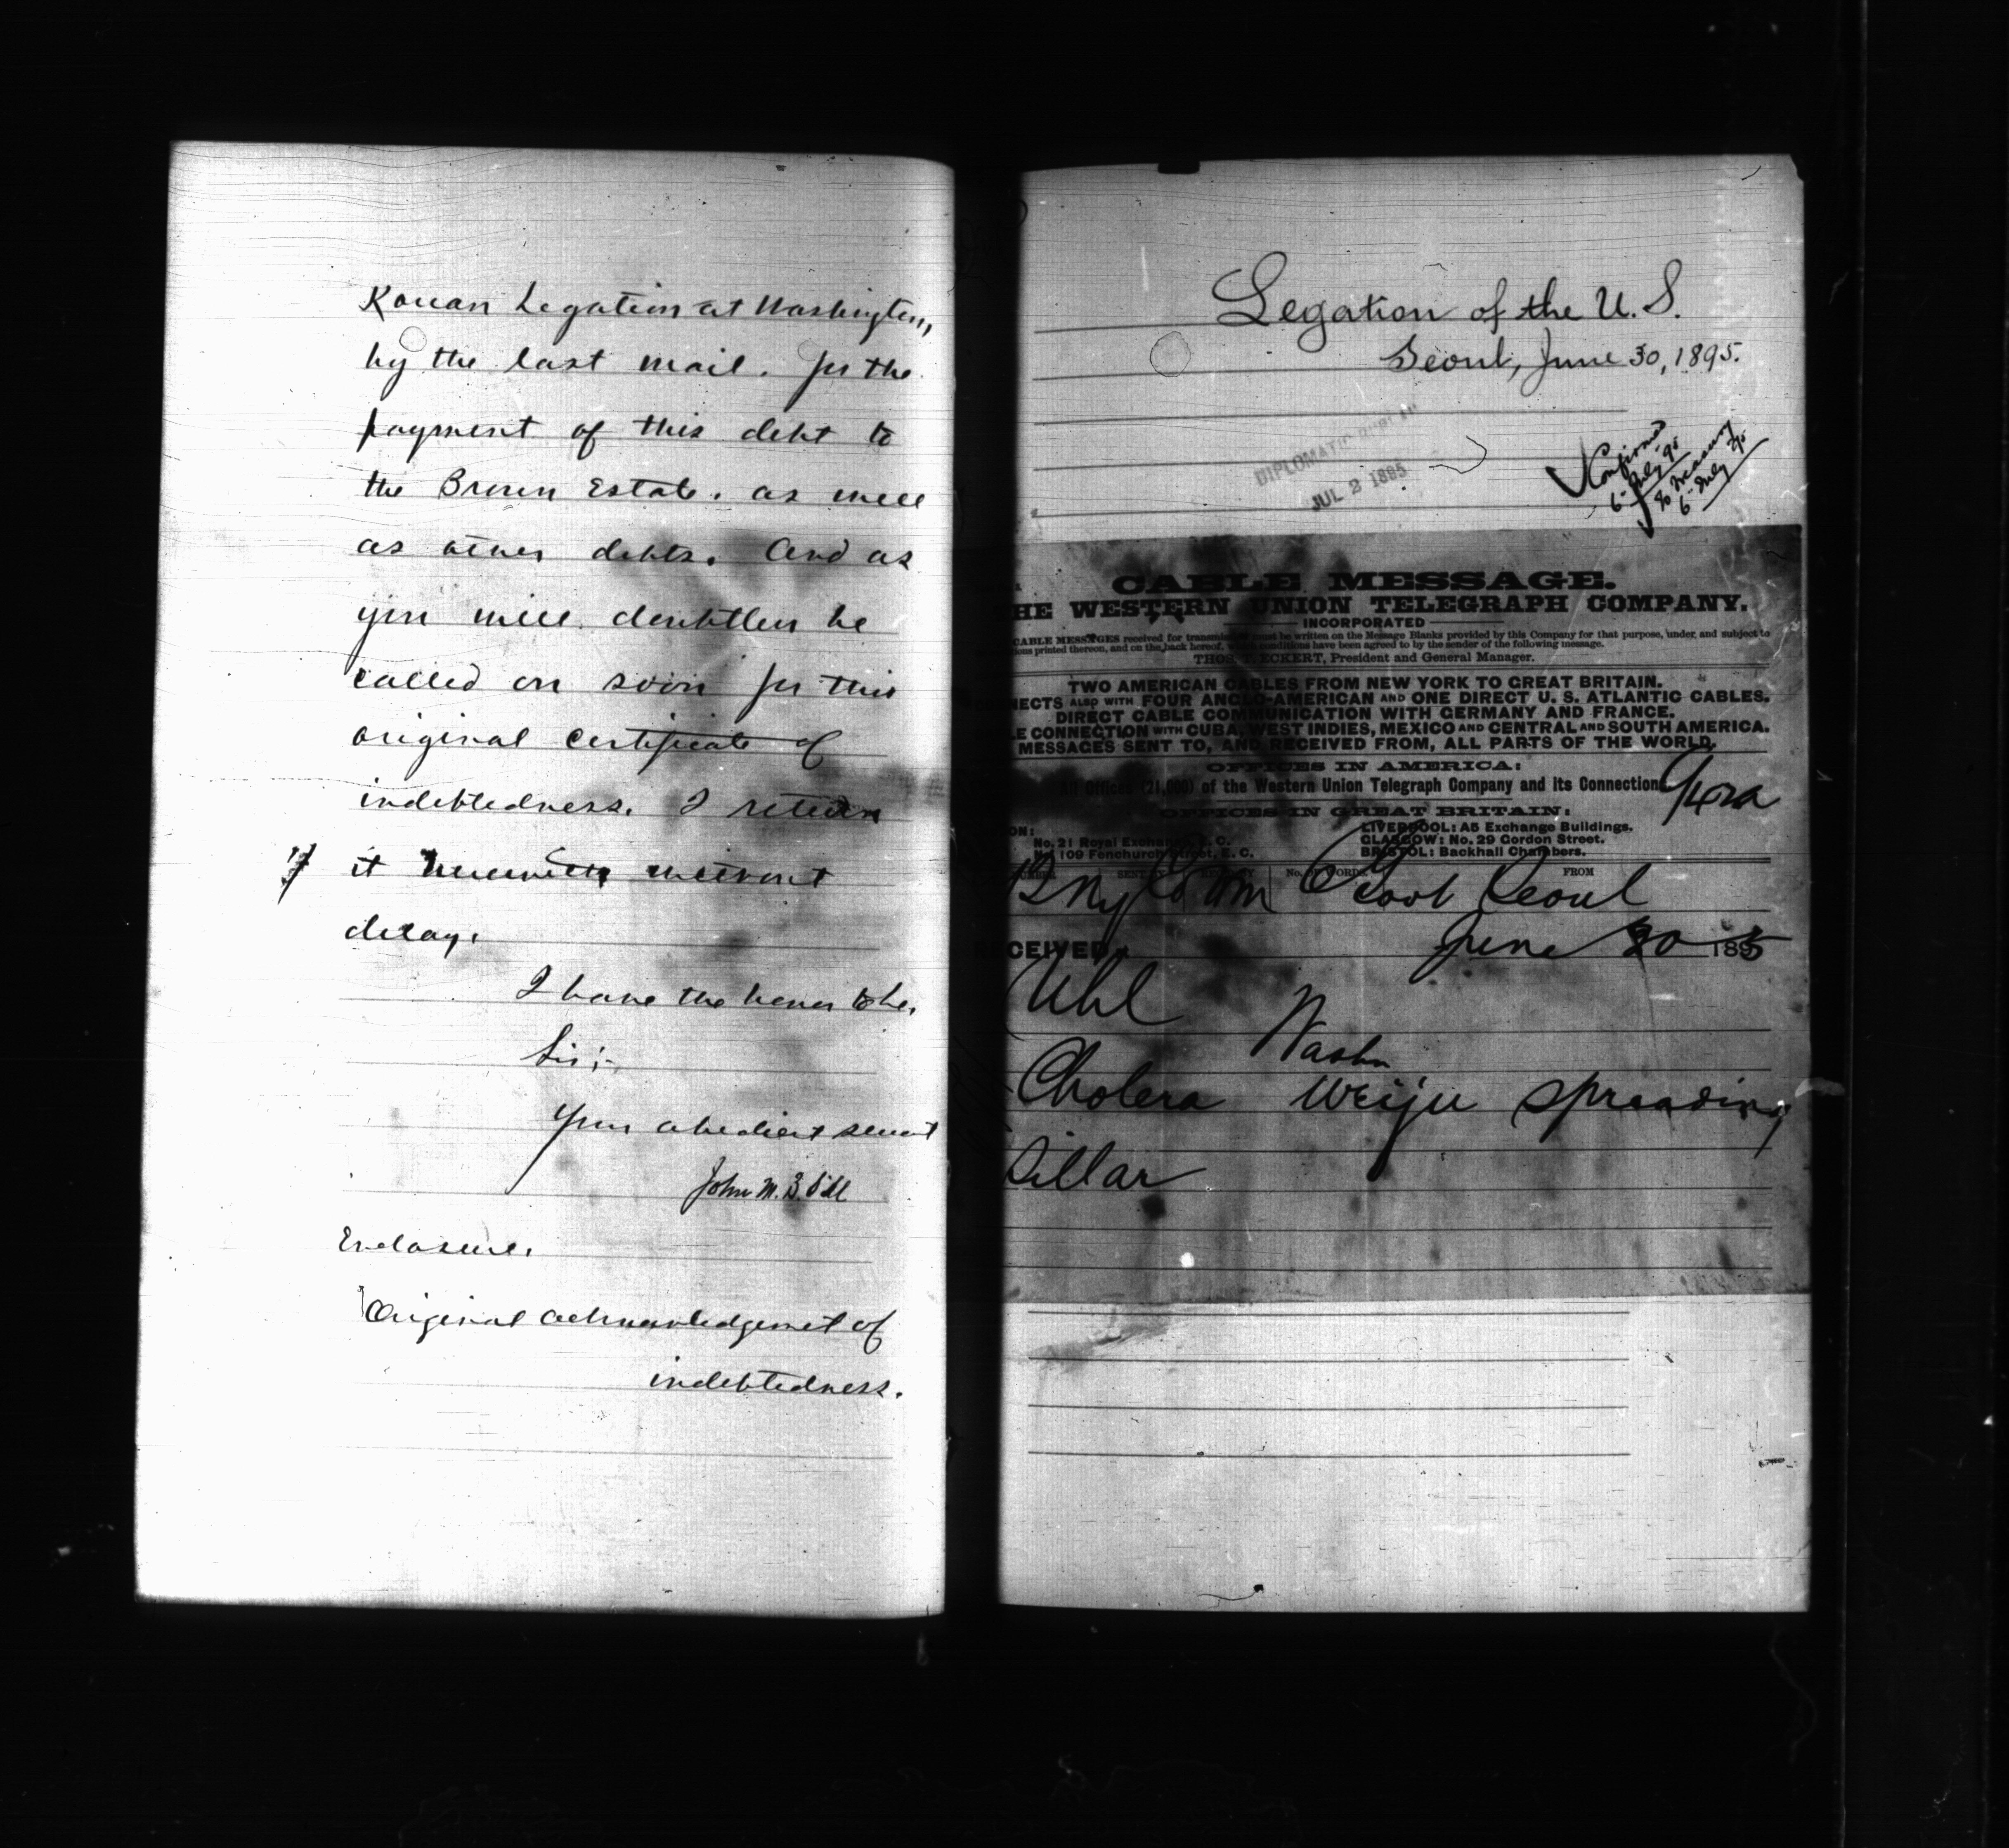 Korean Legation at Washington,
by the last mail. for the
payment of this debt to
the Brown Estate. as well
as other debts. And as
you will doubtless be
called on soon for this
original certificate of
indebtedness. I return
it herewith without
delay.
I have the honor to be,
Sir:-
Your obedient servant
John M. B. Sill
Enclosure.
Original acknowledgemet of
indebtedness.
Legation of the U. S.
Seoul, June 30, 1895.
DIPLOMATIC
JUL 2 1895
Confirmed
6 July '95
To Treasury
6 July '95
CABLE MESSAGE.
HE WESTERN UNION TELEGRAPH COMPANY.
INCORPORATED
CABLE MESSAGES received for transmission must be written on the Message Blanks provided by this Company for that purpose, under, and subject to
ions printed thereon, and on the back hereof, which conditions have been agreed to by the sender of the following message.
THOS. T. ECKERT, President and General Manager.
TWO AMERICAN CABLES FROM NEW YORK TO GREAT BRITAIN.
NECTS ALSO WITH FOUR ANGLO-AMERICAN AND ONE DIRECT U. S. ATLANTIC CABLES.
DIRECT CABLE COMMUNICATION WITH GERMANY AND FRANCE.
E CONNECTION WITH CUBA, WEST INDIES, MEXICO AND CENTRAL AND SOUTH AMERICA.
MESSAGES SENT TO, AND RECEIVED FROM, ALL PARTS OF THE WORLD.
OFFICES IN AMERICA:
All Offices (21,000) of the Western Union Telegraph Company and its Connection
OFFICES IN GREAT BRITAIN:
ON:
LIVERPOOL: A5 Exchange Buildings.
No. 21 Royal Exchange, E. C.
GLASGOW: No. 29 Gordon Street.
No. 109 Fenchurch Street, E. C.
BRISTOL: Backhall Chambers.
NUMBER SENT BY REC'D BY No. OF WORDS. FROM
Seoul
CEIVED June 30 1895
Uhl
Washn
Cholera Weiju spreading
Sillar